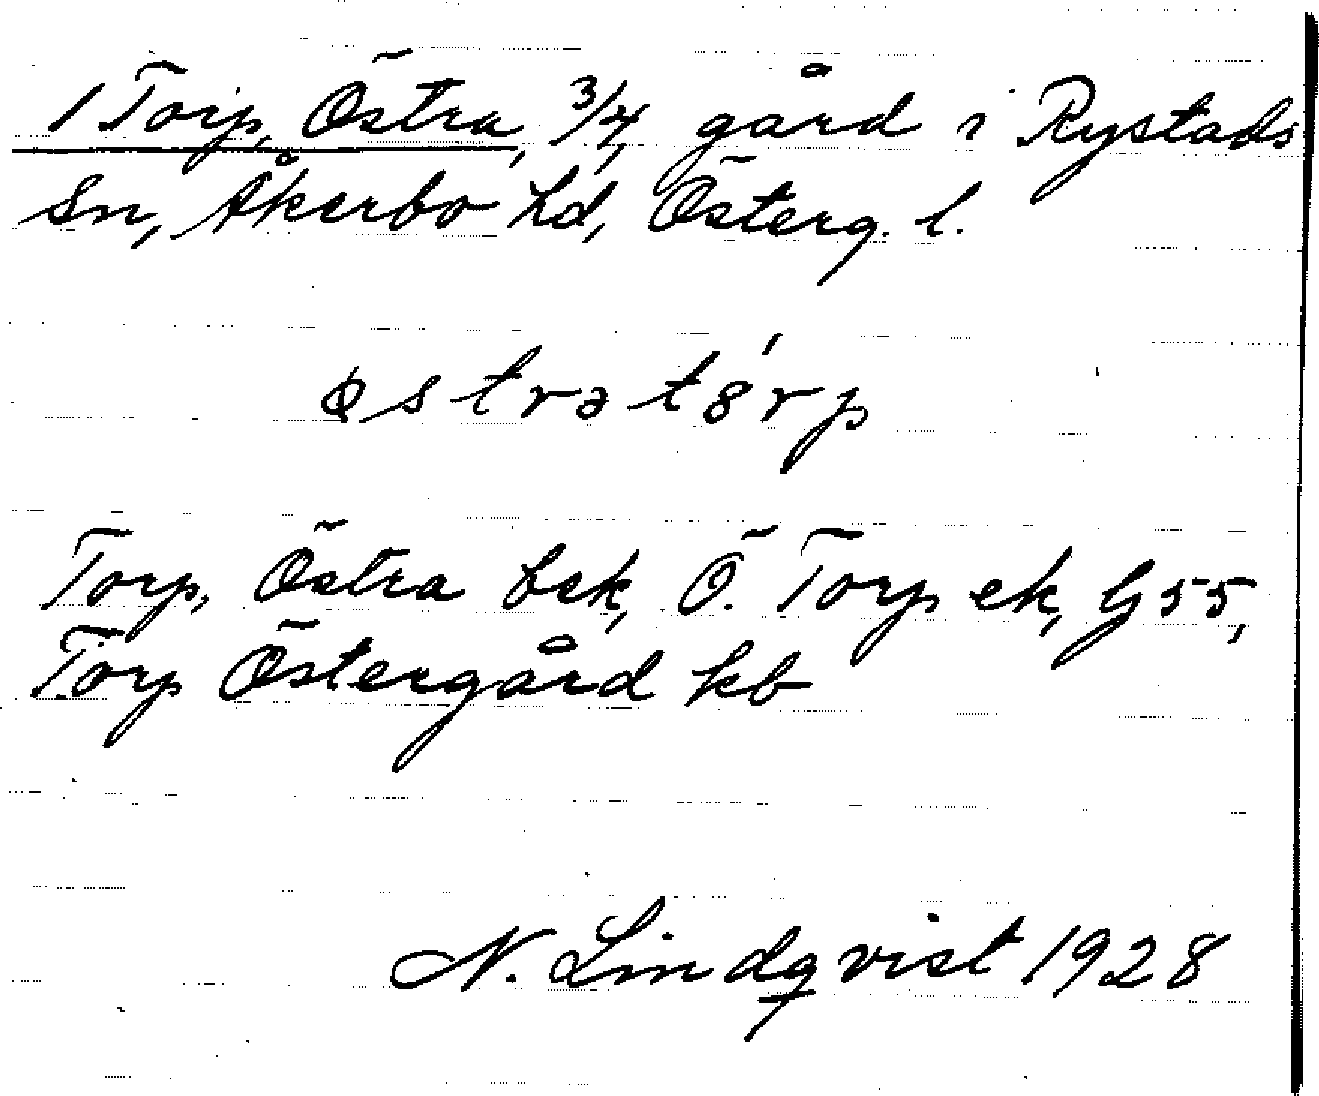 1 Torp, Östra, 3/4 gård i Rystads
Sn, Åkerbo hd, Österg. l.
østrətórp
Torp, Östra bsk, Ö. Torp ek, G 55,
Torp Östergård kb
N. Lindqvist 1928